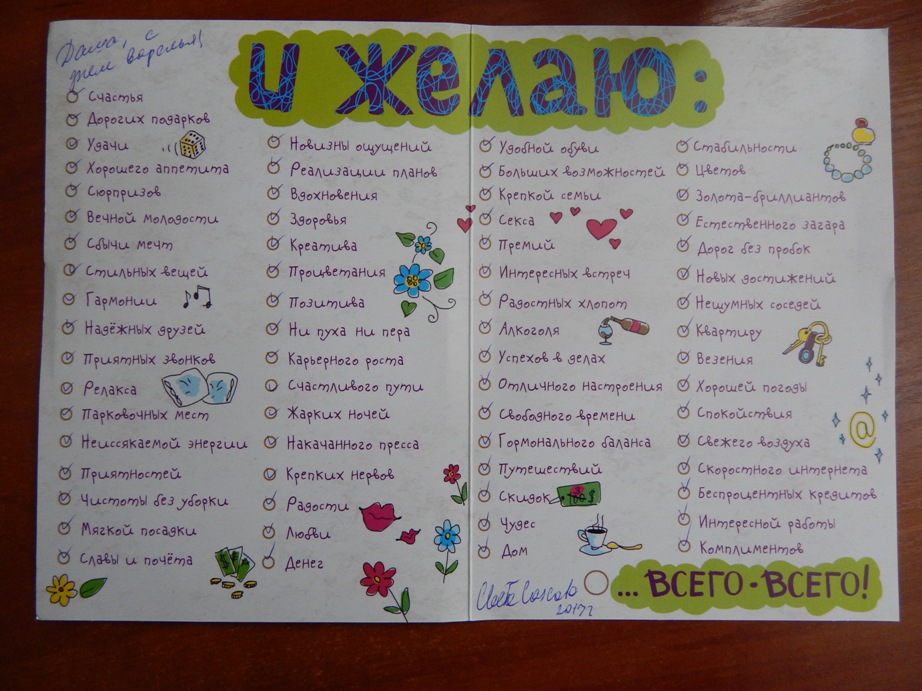 Даша, с
днем варенья!
И желаю:
Счастья
Дорогих подарков
Удачи
Хорошего аппетита
Сюрпризов
Вечной молодости
Сбычи мечт
Стильных вещей
Гармонии
Надёжных друзей
Приятных звонков
Релакса
Парковочных мест
Неиссякаемой энергии
Приятностей
Чистоты без уборки
Мягкой посадки
Славы и почёта
Новизны ощущений
Реализации планов
Вдохновения
Здоровья
Креатива
Процветания
Позитива
Ни пуха ни пера
Карьерного роста
Счастливого пути
Жарких ночей
Накачанного пресса
Крепких нервов
Радости
Любви
Денег
Удобной обуви
Больших возможностей
Крепкой семьи
Секса
Премий
Интересных встреч
Радостных хлопот
Алкоголя
Успехов в делах
Отличного настроения
Свободного времени
Гормонального баланса
Путешествий
Скидок
Чудес
Дом
Стабильности
Цветов
Золота-бриллиантов
Естественного загара
Дорог без пробок
Новых достижений
Нешумных соседей
Квартиру
Везения
Хорошей погоды
Спокойствия
@
Свежего воздуха
Скоростного интернета
Беспроцентных кредитов
Интересной работы
Комплиментов
... ВСЕГО-ВСЕГО!
2017г